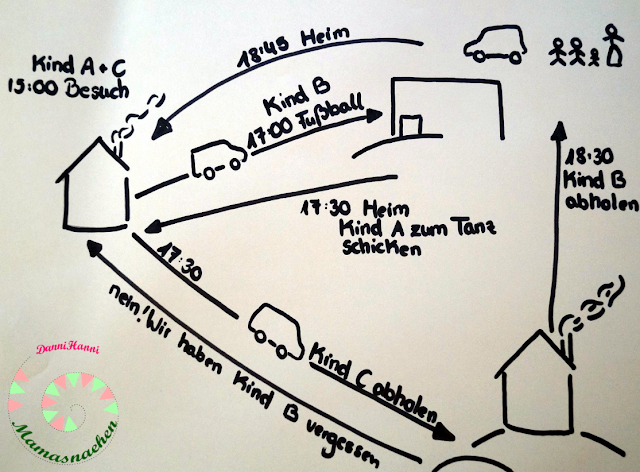 18:45 Heim
Kind A + C
15:00 Besuch
Kind B
17:00 Fußball
18:30
Kind B
abholen
17:30 Heim
Kind A zum Tanz
schicken
17:30
Kind C abholen
nein! Wir haben Kind B vergessen
DanniHanni
Mamasnaehen